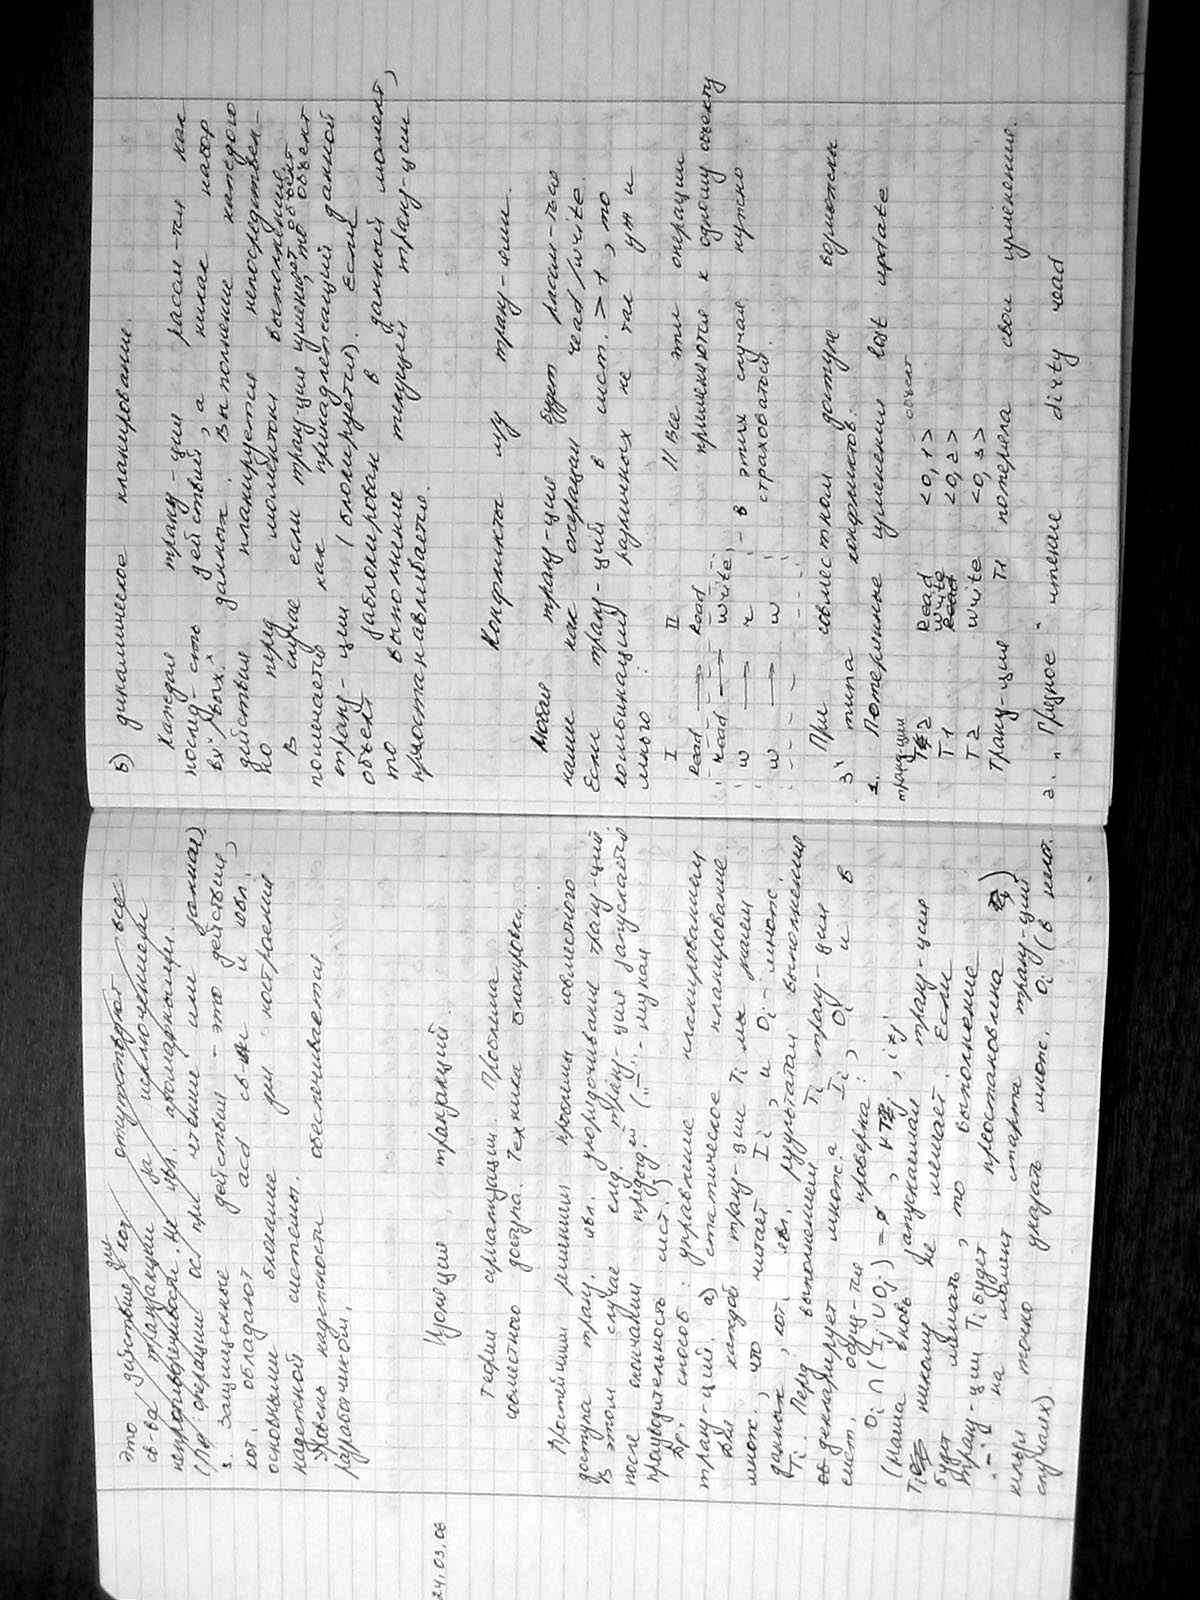 это действия, при кот. отсутствуют все
св-ва транзакции за исключением
непротиворечивости. Не явл. атомарными.
(Пр: операции ос при чтение или записи)
3. Защищенные действия - это действия,
кот. обладают acd св-ми и явл.
основными блоками при построения
надежной системы.
Уровень надежности обеспечивается
разработчиком.
24.03.06
Изоляция транзакций.
теория сериализации. Проблема
совместного доступа. Техника блокировки.
Простейшим решением проблемы совместного
доступа транз. явл. упорядочивание транз-ций
В этом случае след. транз-ция запускается
после окончания предыд-ей (- низкая
производительность сист.)
Др. способ: управление планированием
транз-ций. а) статическое планирование
Для каждой транз-ции Ti мы знаем
множ., что читает Ii, и Oi - множ.
данных, кот. явл. результатом выполнения
Ti. Перед выполнением Ti транз-ция
декларирует множ-а Ii, Oi и в
сист. осущ-тся проверка:
Oi ∩ (Ij ∪ Oj) = ø, ∀ Tj, i≠j
(наша вновь запускаемая транз-ция
Ti никому не мешает. Если
будет мешать, то выполнение
транз-ции Ti будет преостановлена)
"-" на момент старта транз-ций
нельзя точно указать множ. Oi (в нект.
случаях)
б) динамическое планирование.
Каждая транз-ции рассм-тся как
послед-сть действий, а никак набор
вх. и вых. данных. Выполнение каждого
действия планируется непосредствен-
но перед моментом выполнения
В случае если транз-ция изменяет объект, то объект
помечается как принадлежащий данной
транз-ции (блокируется). Если
объект заблокирован в данный момент,
то выполнение текущей транз-ции
приостанавливается.
Конфликты м/у транз-ями.
Любая транз-ция будет рассм-тся
нами как операции read/write.
Если транз-ций в сист. > 1, то
комбинаций различных не так уж и
много:
I II
Read → Read
Read → Write
W → r
W → W
// Все эти операции
применяются к одному объекту
- в этих случая нужно
страховаться.
При совместном доступе возможны
3и типа конфликтов:
1. Потерянные изменения lost update
транз-ции объект
T2 Read <0,1>
T1 Write <0,2>
T2 write <0,3>
Транз-ция T1 потеряла свои изменения.
2. "Грязное" чтение dirty read